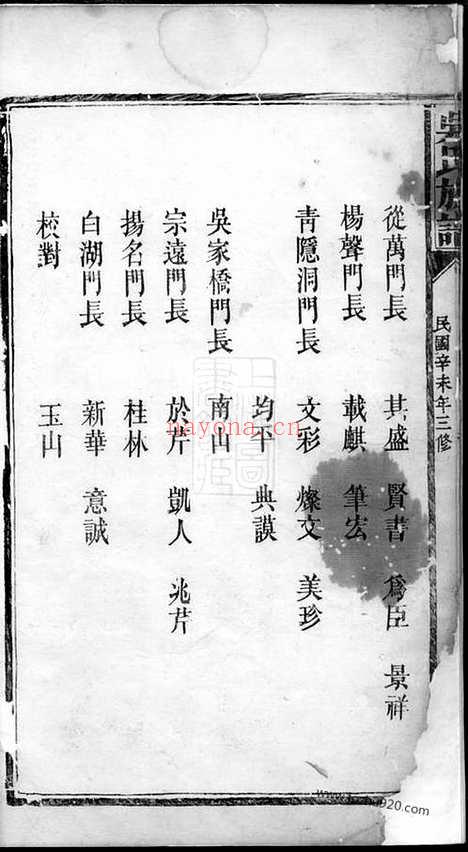 吳氏族譜
民國辛未年三修
從萬門長 其盛 賢書 爲臣 景祥
楊聲門長 載麒 筆宏
靑隱洞門長 文彩 燦文 美珍
均平 典謨
吳家橋門長 南山
宗遠門長 於芹 凱人 兆芹
揚名門長 桂林
白湖門長 新華 意誠
校對 玉山
nayona.cn